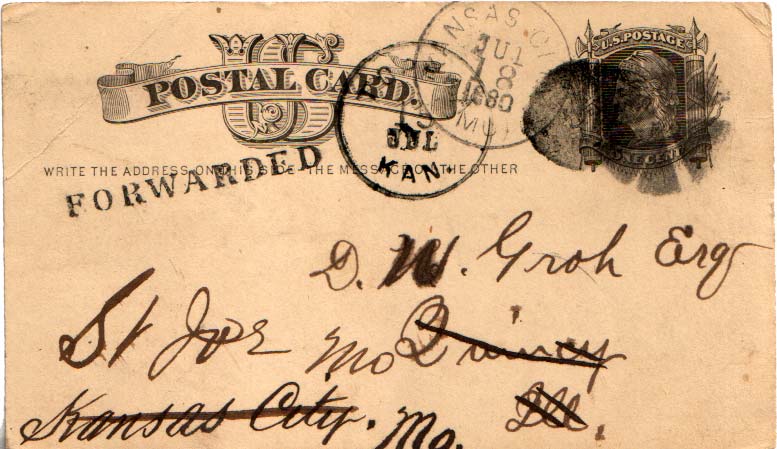 US
POSTAL CARD.
KANSAS CI
JUL
18
1880
MO
U.S. POSTAGE
ONE CENT
JUL
KAN.
WRITE THE ADDRESS ON THIS SIDE - THE MESSAGE ON THE OTHER
FORWARDED
D. W. Groh Esq
St Joe Mo Quincy
Kansas City. Mo. Ill.